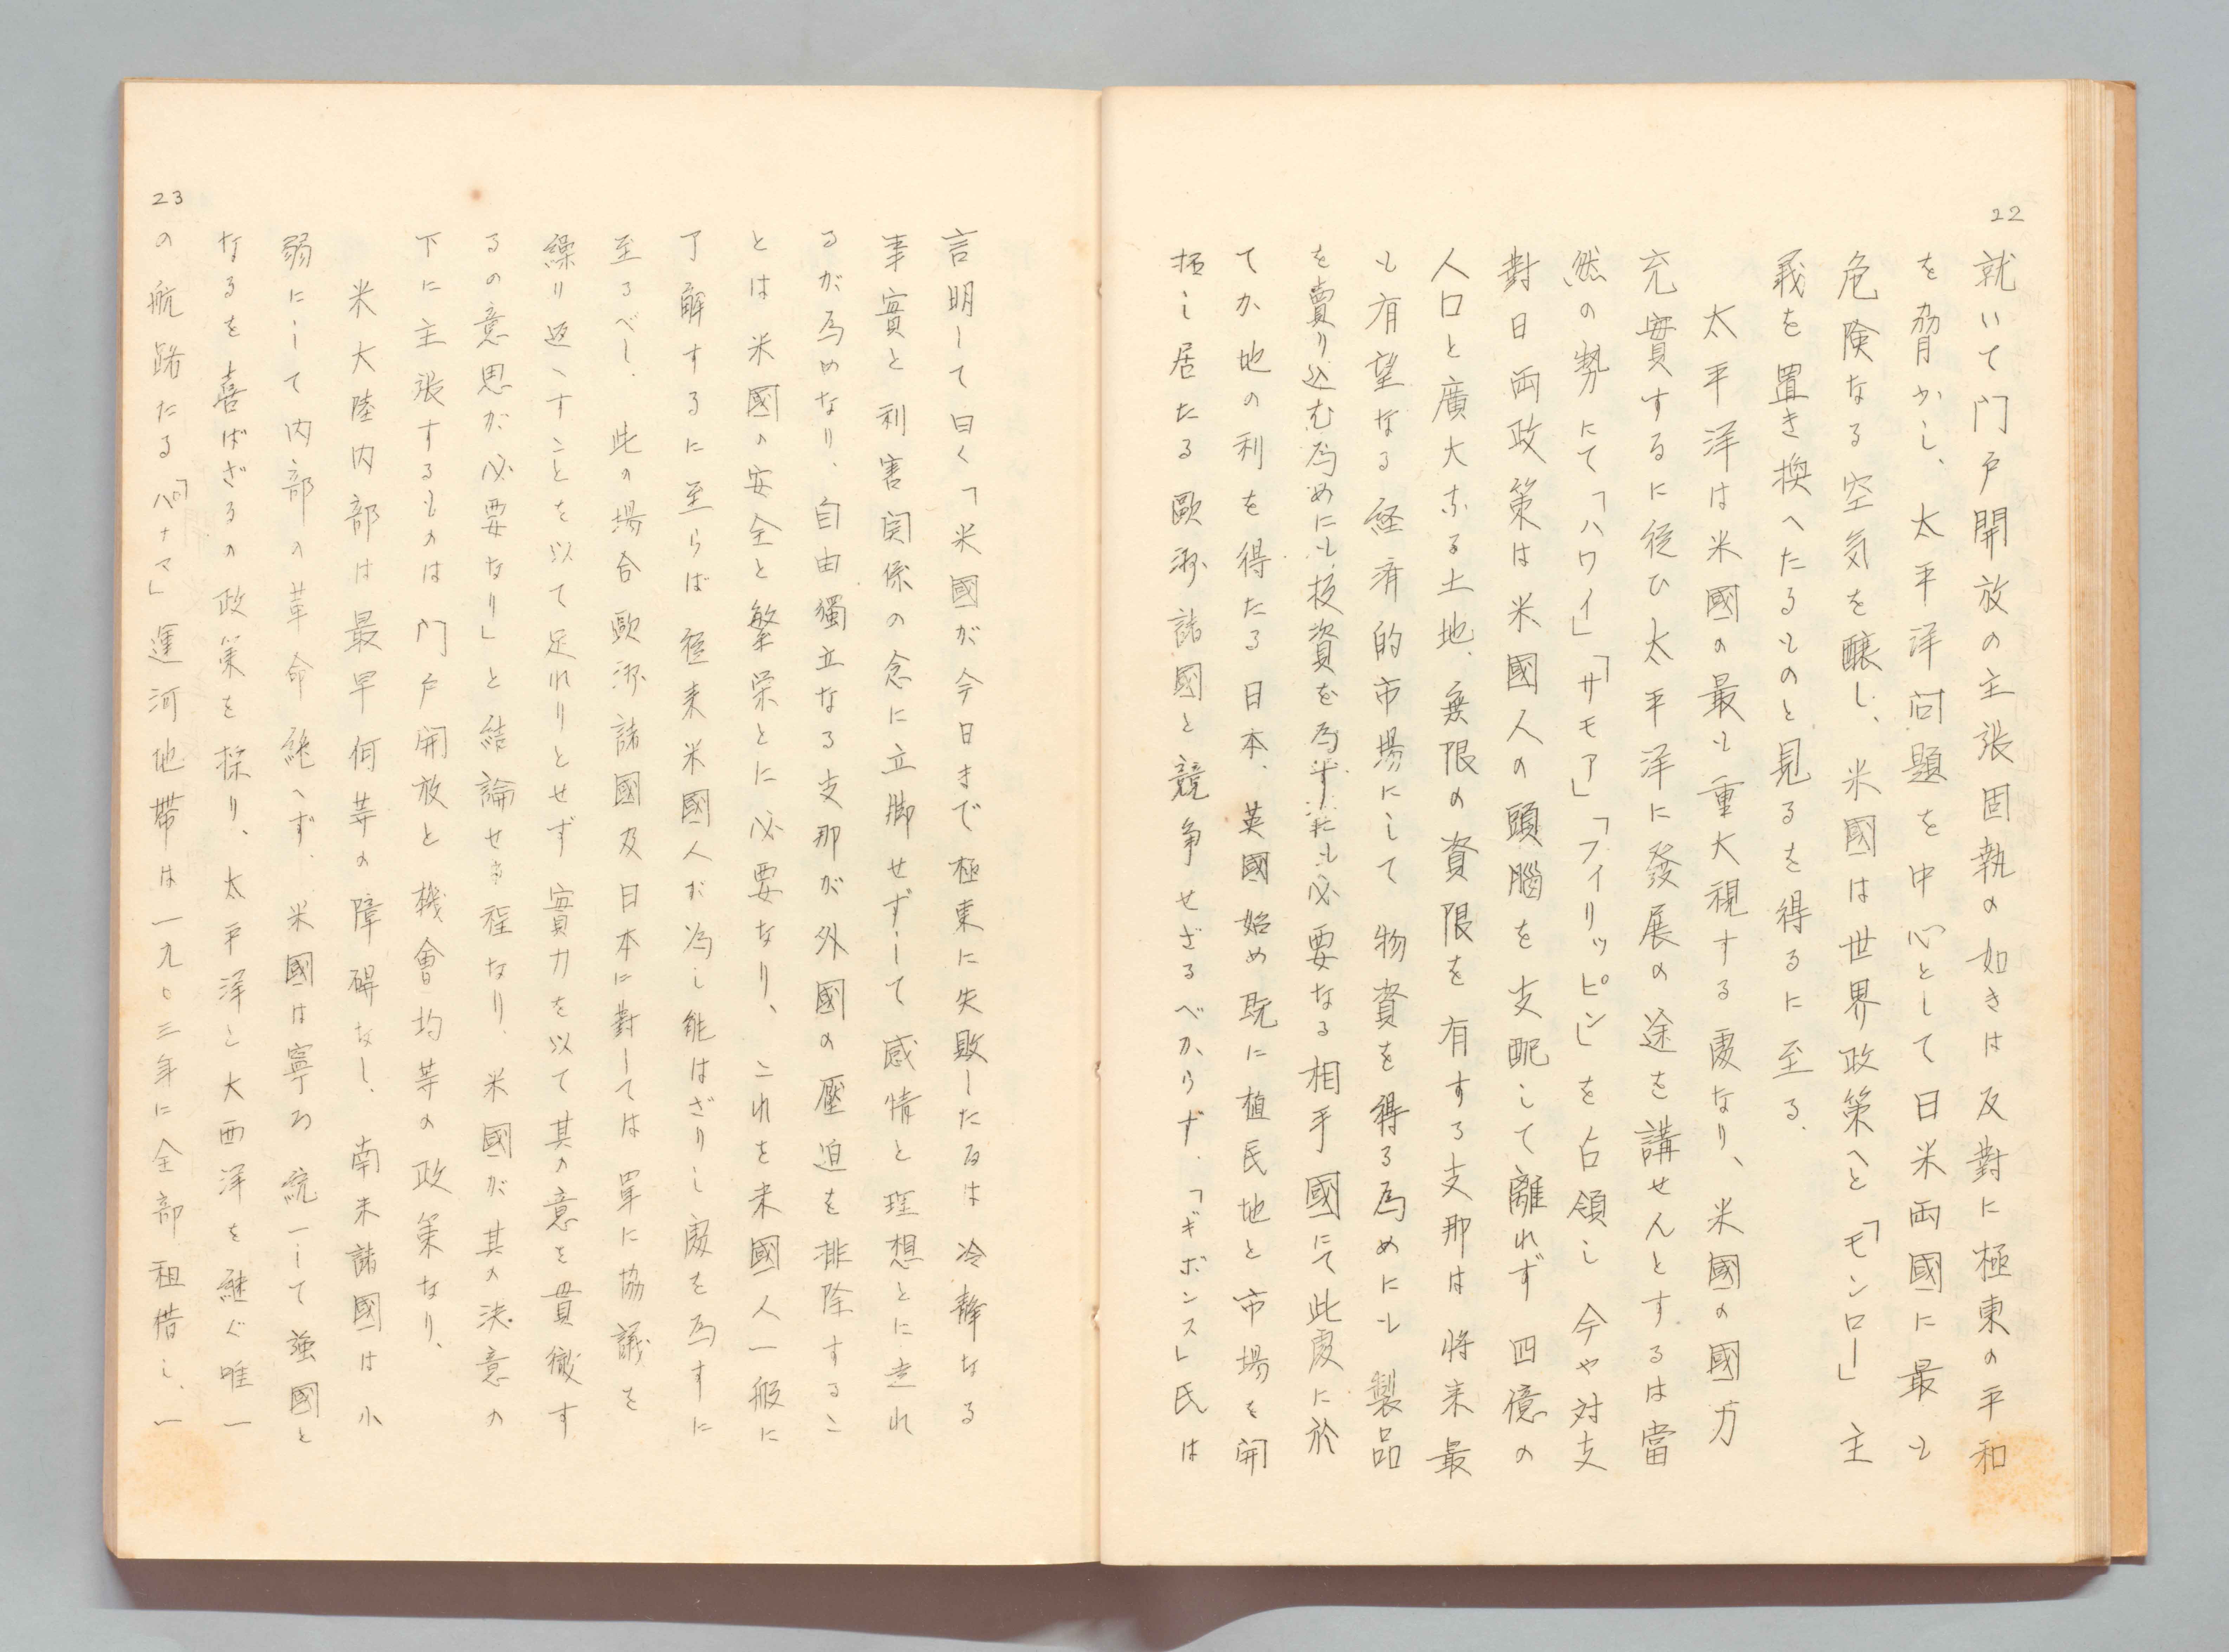 22
就いて門戸開放の主張固執の如きは反對に極東の平和
を脅かし、太平洋问題を中心として日米両國に最も
危険なる空気を醸し、米國は世界政策へと「モンロー」主
義を置き換へたるものと見るを得るに至る.
太平洋は米國の最も重大視する處なり、米國の國力
充實するに従ひ太平洋に發展の途を講せんとするは當
然の勢にて「ハワイ」「サモア」「フイリッピン」を占領し今や対支
對日両政策は米國人の頭腦を支配して離れず四億の
人口と廣大なる土地.無限の資限を有する支那は将来最
も有望なる経済的市場にして物資を得る為めにも製品
を賣り込む為めにも投資を為すにも必要なる相手國にて此處に於
てか地の利を得たる日本、英國始め既に植民地と市場を開
拓し居たる歐洲諸國と競争せざるべからず.「ギボンス」氏は
言明して曰く「米國が今日まで極東に失敗したるは冷静なる
事實と利害関係の念に立脚せずして感情と理想とに走れ
るが為めなり、自由獨立なる支那が外國の壓迫を排除するこ
とは米國の安全と繁栄とに必要なり、これを米國人一般に
了解するに至らば従来米國人が為し能はざりし處を為すに
至るべし.此の場合歐洲諸國及日本に對しては單に協議を
繰り返へすことを以て足れりとせず實力を以て其の意を貫徹す
るの意思が必要なり」と結論せる程なり.米國が其の決意の
下に主張するものは門戸開放と機會均等の政策なり、
米大陸内部は最早何等の障碍なし.南米諸國は小
弱にして内部の革命絶へず.米國は寧ろ統一して強國と
なるを喜ばざるの政策を採り、太平洋と大西洋を継ぐ唯一
の航路たる「パナマ」運河地帯は一九〇三年に全部租借し、一
23